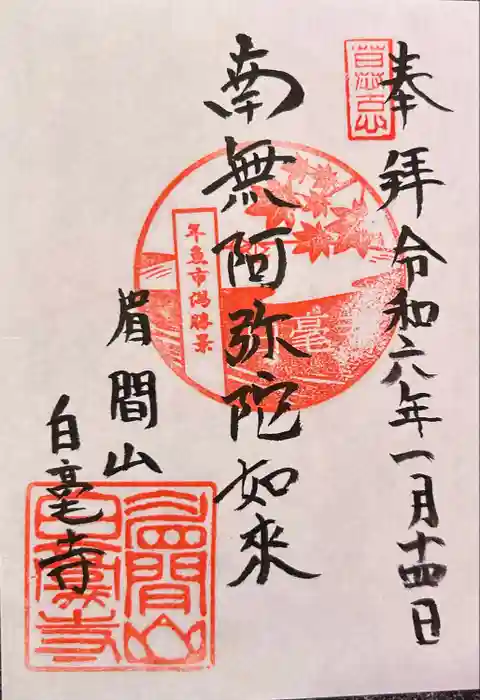 奉拝 令和六年一月十四日
南無阿弥陀如来
年魚市潟勝景
毫
眉間山
白毫寺
眉間山
白毫寺